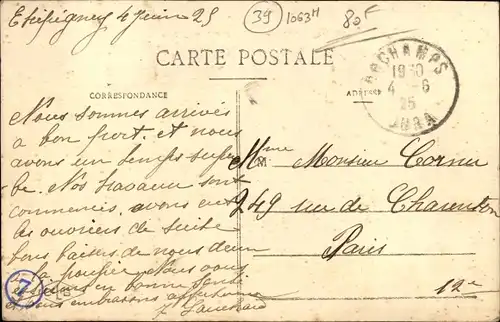 Etrepigney 4 Juin 25
39 1063H 80F
CARTE POSTALE
CORRESPONDANCE
ADRESSE
ORCHAMPS
19 30
4 - 6
25
JURA
Nous sommes arrivés
a bon port. et nous
avons un temps super
be. Nos travaux sont
commencés, avons eu
les ouvriers de suite
bons baisers de nous deux
a
Nous vous
en bonne santé
vous embrassons
Mme M Monsieur Cornu
249 rue de Charenton
Paris
12e
7